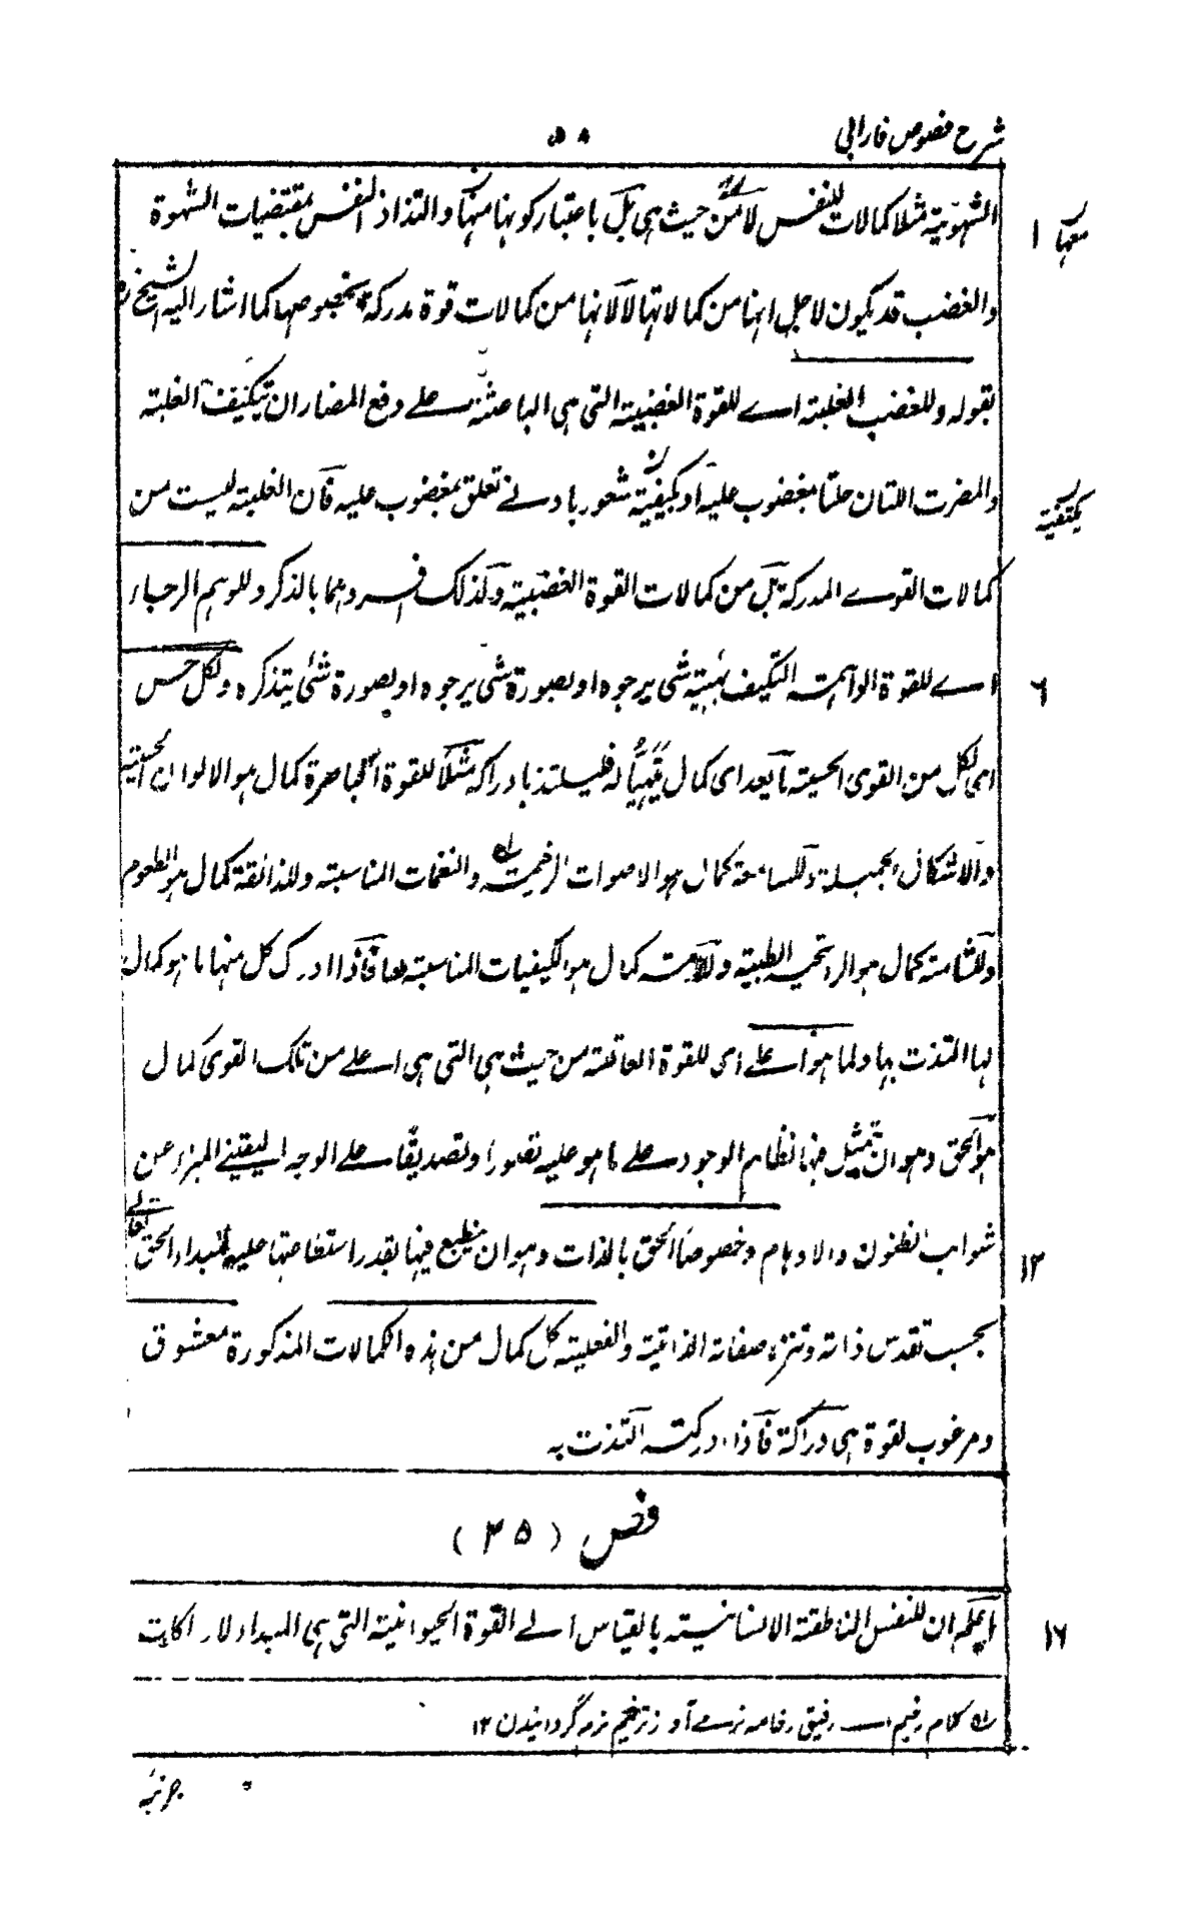 شرح فصوص فارابی
۵۸
الشهوية مثلا كمالات للنفس لا من حيث هی بل باعتبار كونها منها والتذاذ النفس بمقتضيات الشهوة
۱
والغضب قد يكون لاجل انها من كمالاتها لا لانها من كمالات قوة مدركة بخصوصها كما اشار اليه الشيخ
بقوله وللغضب الغلبة اے للقوة الغضبية التی هی الباعثة علے دفع المضار ان تتكيف الغلبة
والمضرت اللتان حلتا مغضوب عليه او بكيفية شعور با ولے تعلق بمغضوب عليه فان الغلبة ليست من
كمالات القوے المدركة بل من كمالات القوة الغضبية وكذلك افردهما بالذكر وللوهم الرجاء
اے للقوة الواهمة التكيف بهيئة شئ يرجوه او بصورة شئ يرجوه او بصورة شئ يتذكره ولكل حس
۶
ای لكل من القوى الحسية ما يعد ای كمال تهيأ له فليلتذ بادراكه مثلا للقوة الباصرة كمال هو الالوان الحسنة
والاشكال الجميلة وللسامعة كمال هو الاصوات الرخيمة والنغمات المناسبة وللذائقة كمال هو الطعوم
وللشامة كمال هو الرائحة الطيبة وللامسة كمال هو الكيفيات المناسبة لها فاذا ادرك كل منها ما هو كمال
لها التذت بها ولما هو اعلے ای للقوة العاقلة من حيث هی التی هی اعلے من تلك القوى كمال
هو الحق وهو ان يتمثل فيها نظام الوجود علے ما هو عليه تصورا وتصديقا علے الوجه اليقينے المبرء عن
شوائب الظنون والاوهام وخصوصا الحق بالذات وهو ان ينطبع فيها بقدر استطاعتها عليه المبداء الحق تعالے
۱۲
بحسب تقدس ذاته وتنزه صفاته الذاتية والفعلية كل كمال من هذه الكمالات المذكورة معشوق
ومرغوب لقوة هی دراكة فاذا ادركته التذت به
فص (۲۵)
اعلم ان للنفس الناطقة الانسانية بالقياس الے القوة الحيوانية التی هی المبداء لادراكات
۱۶
كلام رخيم اے رفيق رخامه نرمے آواز ترخيم نرم گردانيدن ۱۲